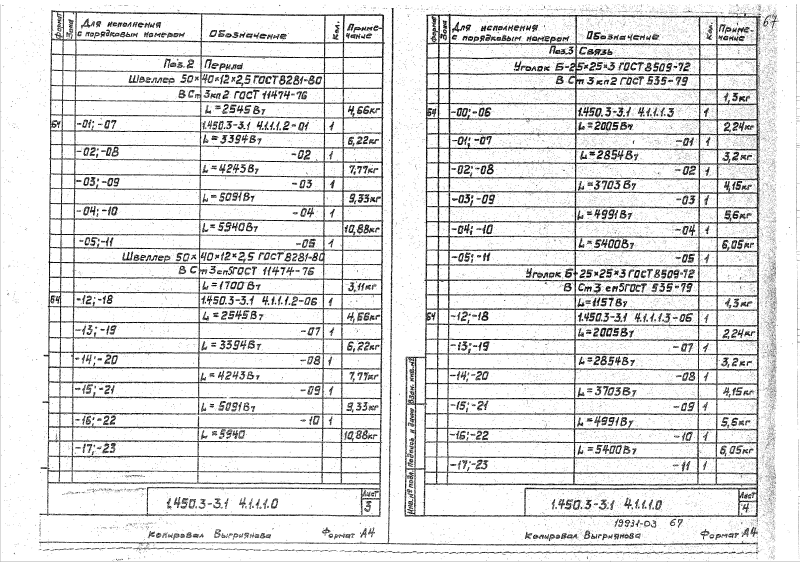 формат
Зона
Для исполнения с порядковым номером
Обозначение
Кол.
Примечание
Поз.2 Перила
Швеллер 50×40×12×2,5 ГОСТ 8281-80
В Ст 3кп2 ГОСТ 11474-76
L = 2545 Вт 4,66кг
Б4 -01; -07 1.450.3-3.1 4.1.1.1.2-01 1
L = 3394Вт 6,22кг
-02;-08 -02 1
L = 4243Вт 7,77кг
-03;-09 -03 1
L = 5091Вт 9,33кг
-04;-10 -04 1
L = 5940Вт 10,88кг
-05;-11 -05 1
Швеллер 50×40×12×2,5 ГОСТ 8281-80
В Ст 3сп5ГОСТ 11474-76
L = 1700 Вт 3,11кг
Б4 -12;-18 1.450.3-3.1 4.1.1.1.2-06 1
L = 2545Вт 4,66кг
-13;-19 -07 1
L = 3394Вт 6,22кг
-14;-20 -08 1
L = 4243Вт 7,77кг
-15;-21 -09 1
L = 5091Вт 9,33кг
-16;-22 -10 1
L = 5940 10,88кг
-17;-23
1.450.3-3.1 4.1.1.1.0
Лист
3
Копировал Выгриянова Формат А4
67
формат
Зона
Для исполнения с порядковым номером
Обозначение
Кол.
Примечание
Поз.3 Связь
Уголок Б-25×25×3 ГОСТ 8509-72
В Ст 3кп2 ГОСТ 535-79
1,3кг
Б4 -00;-06 1.450.3-3.1 4.1.1.1.3 1
L = 2005Вт 2,24кг
-01;-07 -01 1
L = 2854Вт 3,2кг
-02;-08 -02 1
L = 3703Вт 4,15кг
-03;-09 -03 1
L = 4991Вт 5,6кг
-04;-10 -04 1
L = 5400Вт 6,05кг
-05;-11 -05 1
Уголок Б-25×25×3 ГОСТ 8509-72
В Ст3 сп5ГОСТ 535-79
L=1157Вт 1,3кг
Б4 -12;-18 1.450.3-3.1 4.1.1.1.3-06 1
L=2005Вт 2,24кг
-13;-19 -07 1
L=2854Вт 3,2кг
-14;-20 -08 1
L = 3703Вт 4,15кг
-15;-21 -09 1
L = 4991Вт 5,6кг
-16;-22 -10 1
L = 5400Вт 6,05кг
-17;-23 -11 1
Инв.№ подл. Подпись и дата Взам. инв.№
1.450.3-3.1 4.1.1.1.0
Лист
4
19931-03 67
Копировал Выгриянова Формат А4